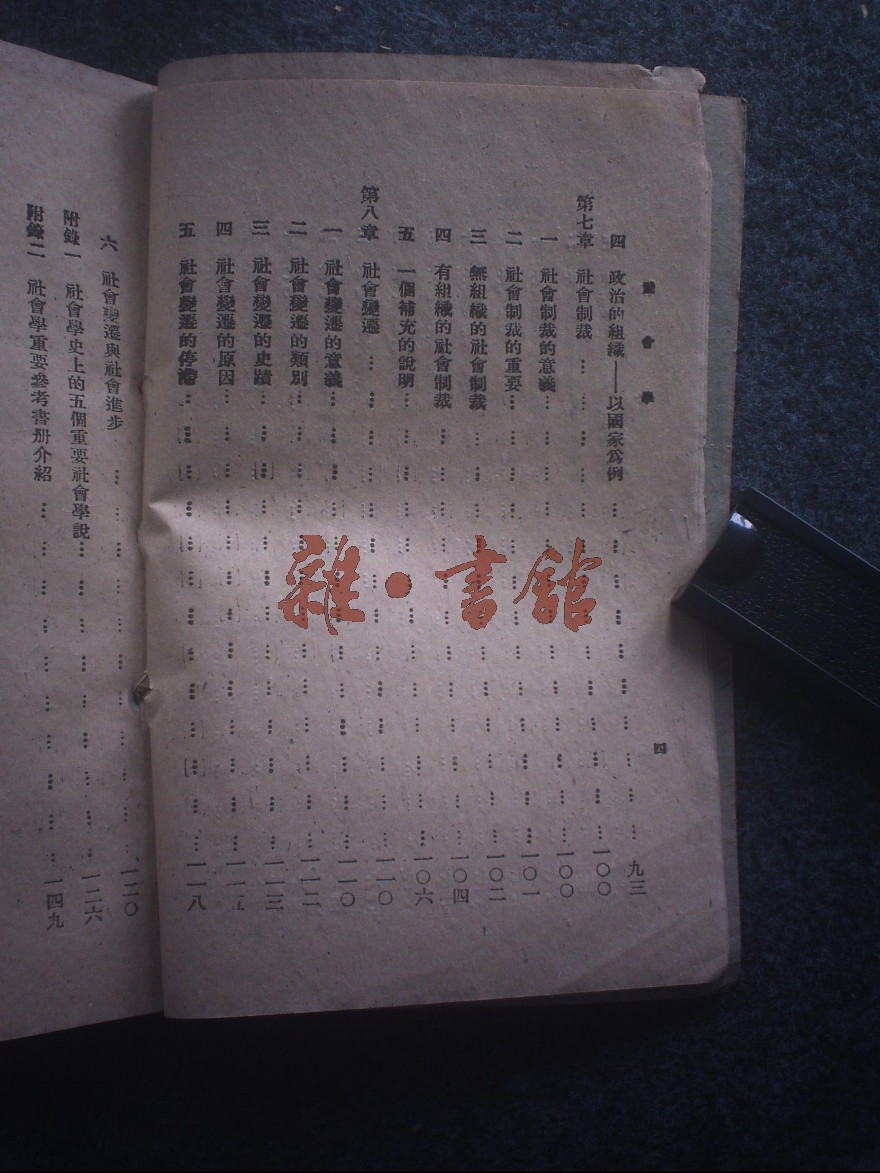 社會學
四
四 政治的組織——以國家爲例……九三
第七章 社會制裁……一〇〇
一 社會制裁的意義……一〇〇
二 社會制裁的重要……一〇一
三 無組織的社會制裁……一〇二
四 有組織的社會制裁……一〇四
五 一個補充的說明……一〇六
第八章 社會變遷……一一〇
一 社會變遷的意義……一一〇
二 社會變遷的類別……一一二
三 社會變遷的史蹟……一一三
四 社會變遷的原因……一一
五 社會變遷的停滯……一一八
六 社會變遷與社會進步……一二〇
附錄一 社會學史上的五個重要社會學說……一二六
附錄二 社會學重要參考書册介紹……一四九
雜·書館